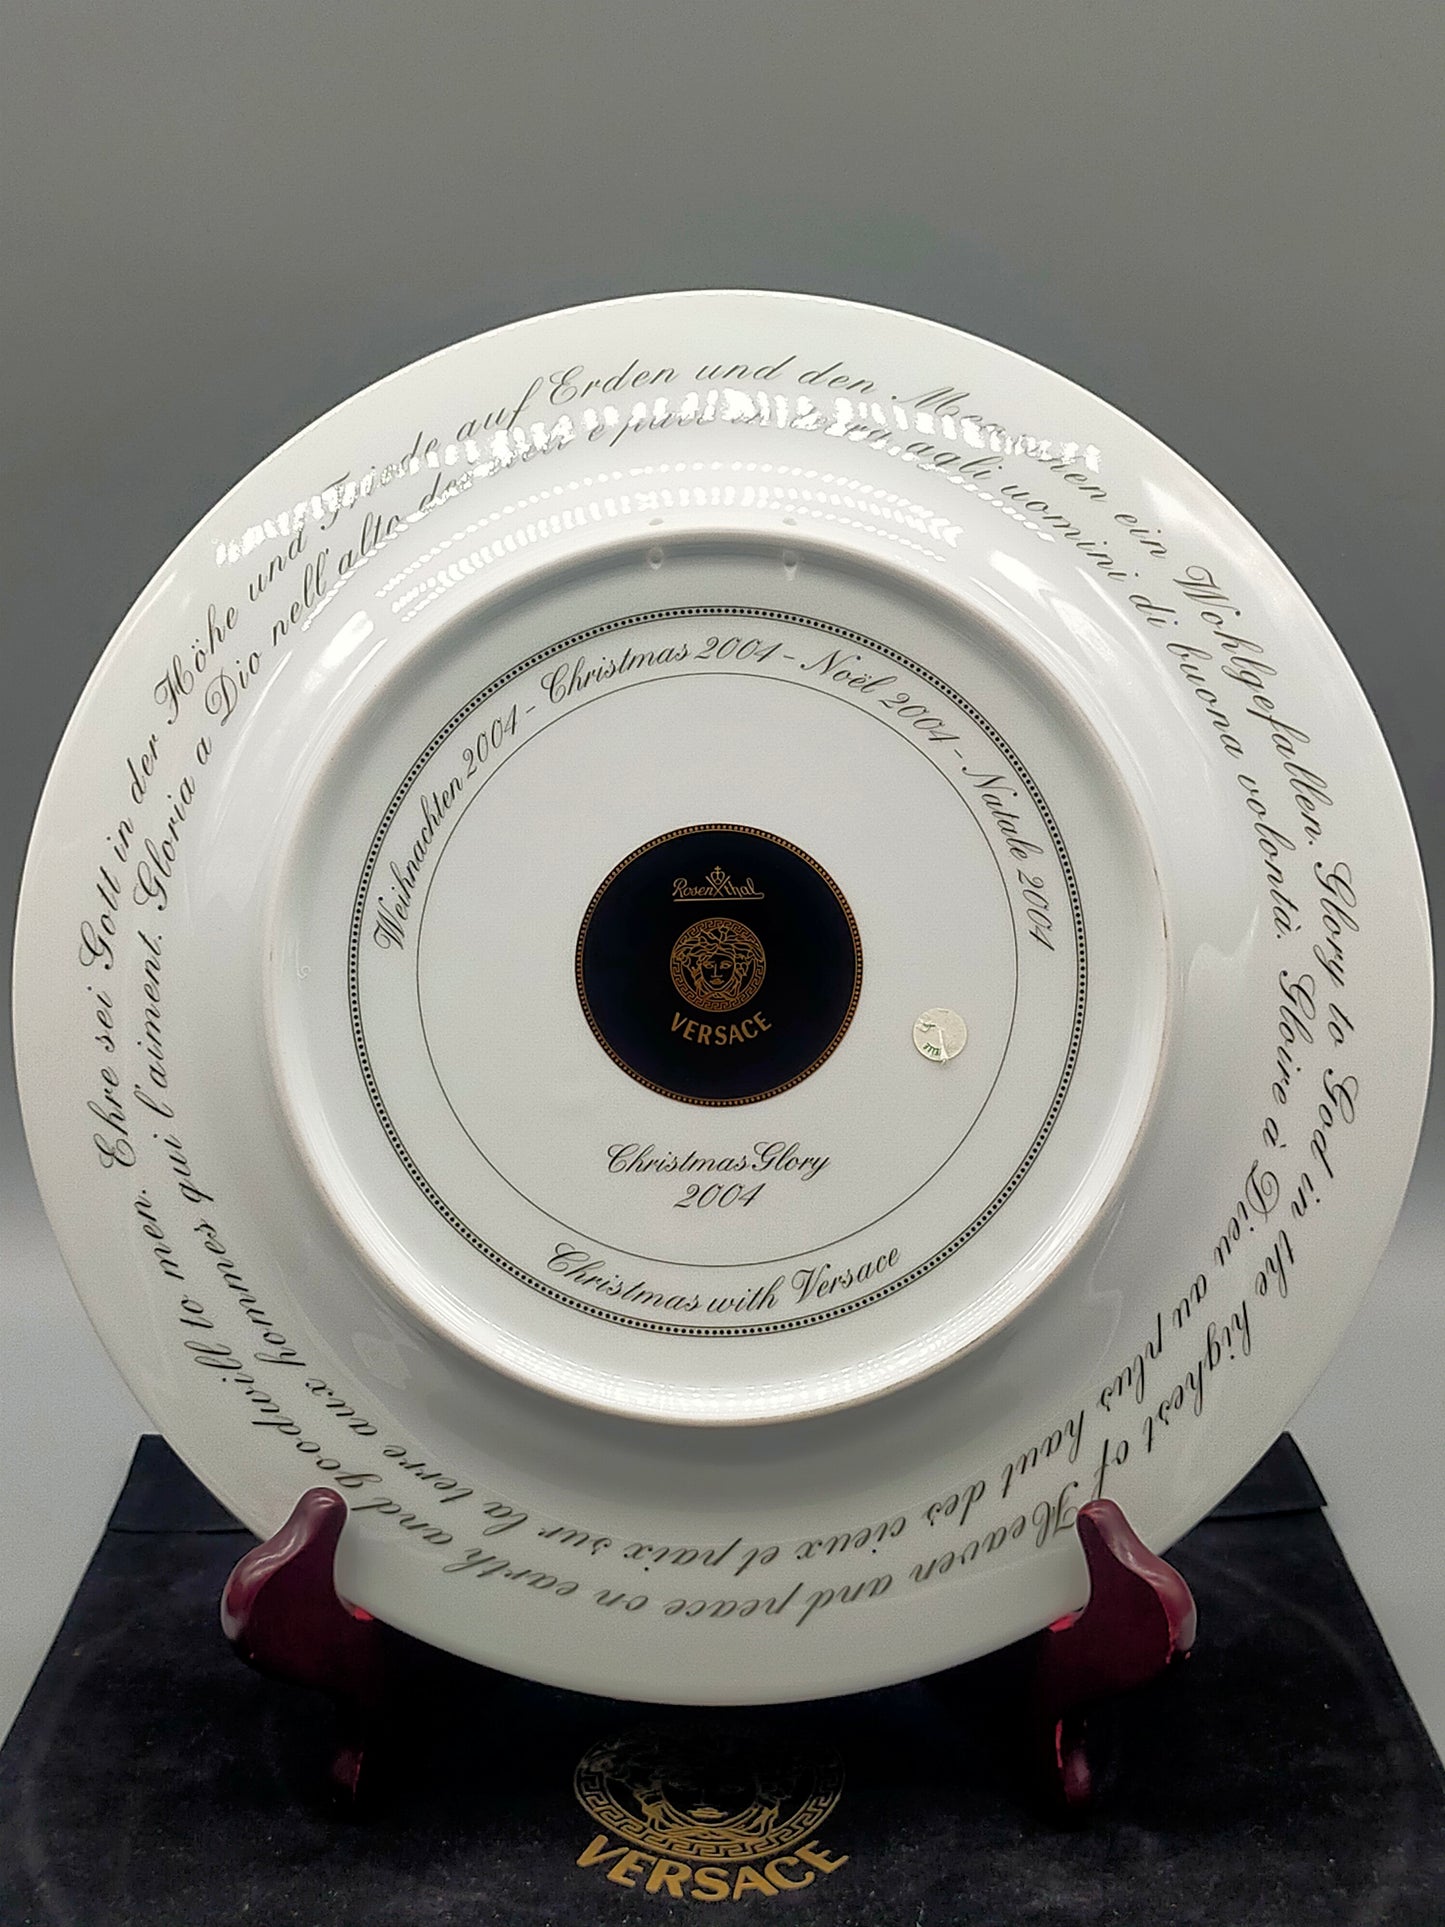 Ehre sei Gott in der Höhe und Friede auf Erden und den Menschen ein Wohlgefallen. Glory to God in the highest of Heaven and peace on earth and goodwill to men.
Gloria a Dio nell'alto dei cieli e pace in terra agli uomini di buona volontà. Gloire à Dieu au plus haut des cieux et paix sur la terre aux hommes qui l'aiment.
Weihnachten 2004 - Christmas 2004 - Noël 2004 - Natale 2004
Rosenthal
VERSACE
Christmas Glory
2004
Christmas with Versace
VERSACE